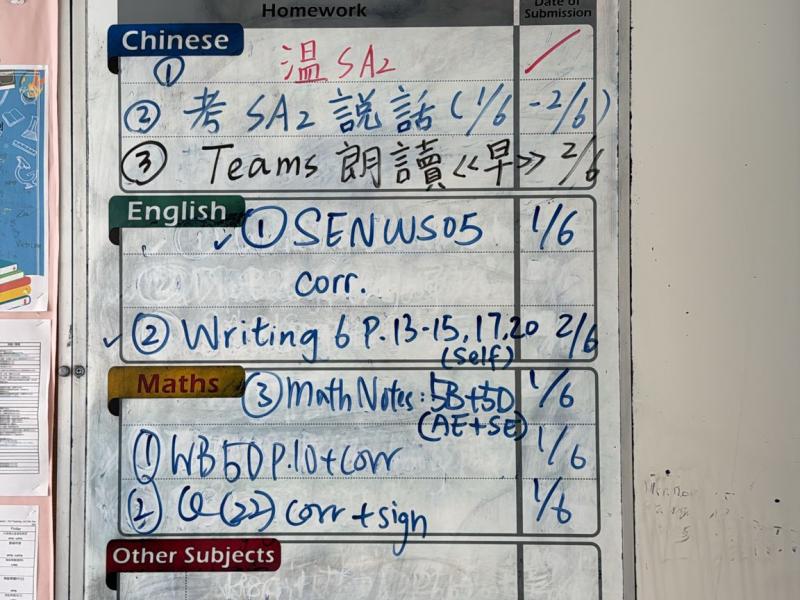 Homework
Date of
Submission
Chinese
① 温 SA2
② 考 SA2 說話 (1/6 - 2/6)
③ Teams 朗讀 《早》 2/6
English
✓ ① SENWS05 1/6
corr.
✓ ② Writing 6 P.13-15,17,20 2/6
(self)
Maths
③ Math Notes: 5B+5D 1/6
(AE+SE)
① WB5D P.10+corr 1/6
② Q(22) corr + sign 1/6
Other Subjects